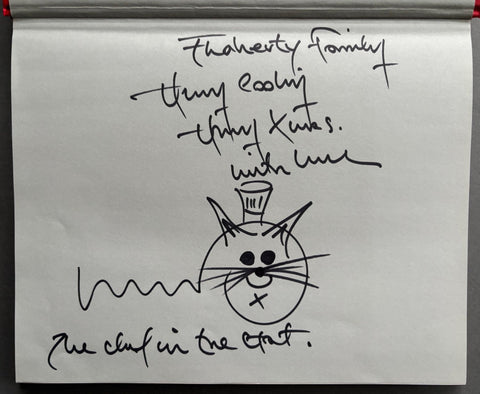 Flaherty Family
Happy Cooking
Happy Xmas.
with love
The chef in the Hat.